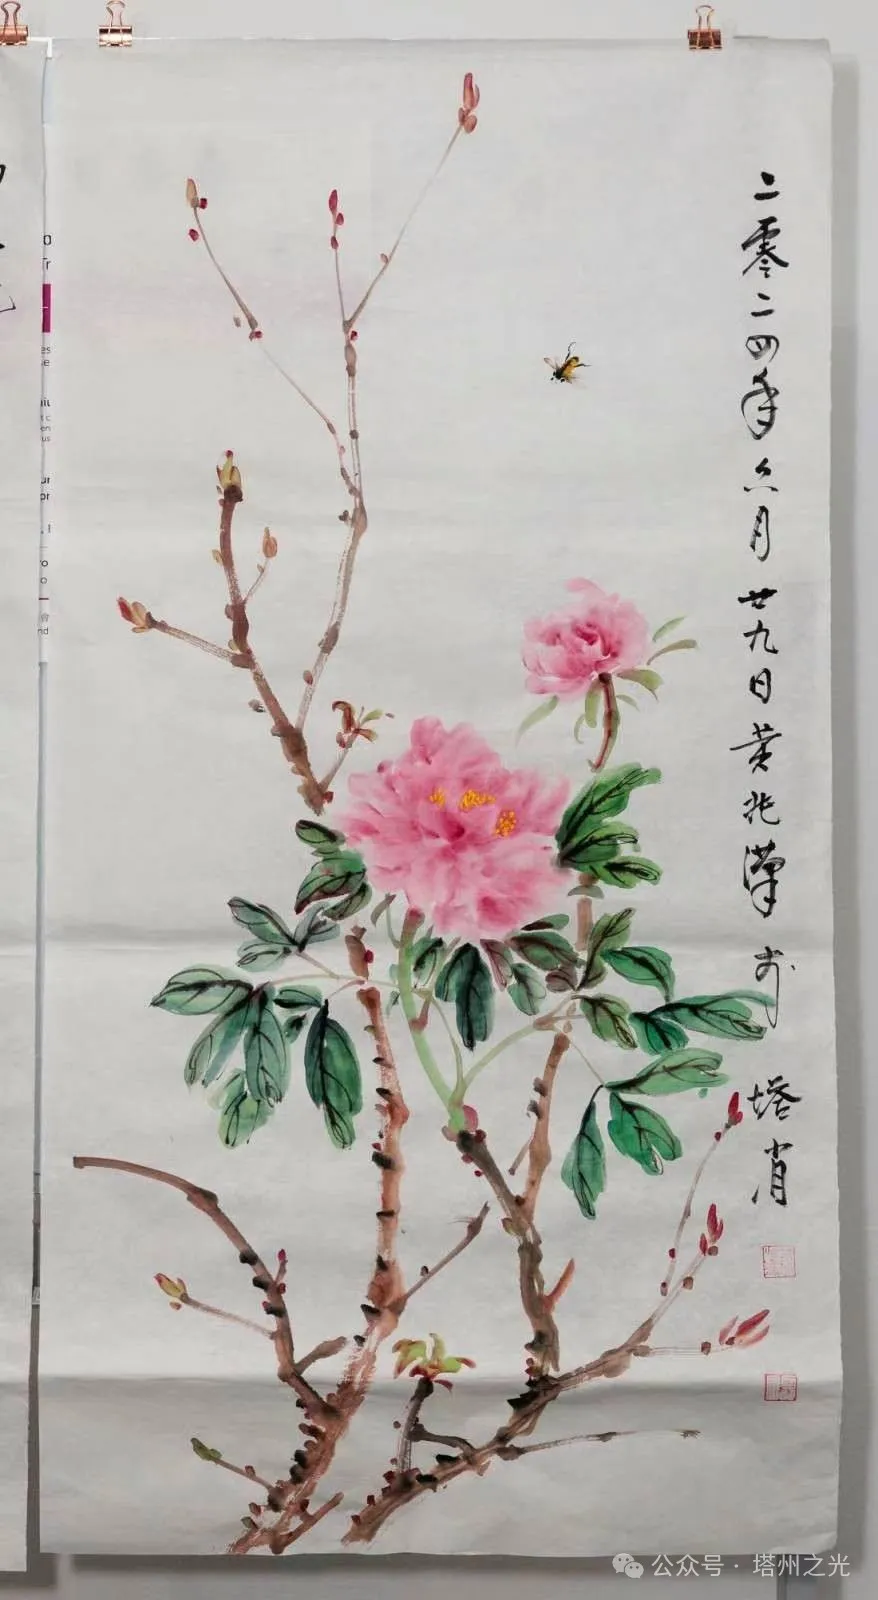 二零二四年六月廿九日黄兆漢於塔省
公众号·塔州之光